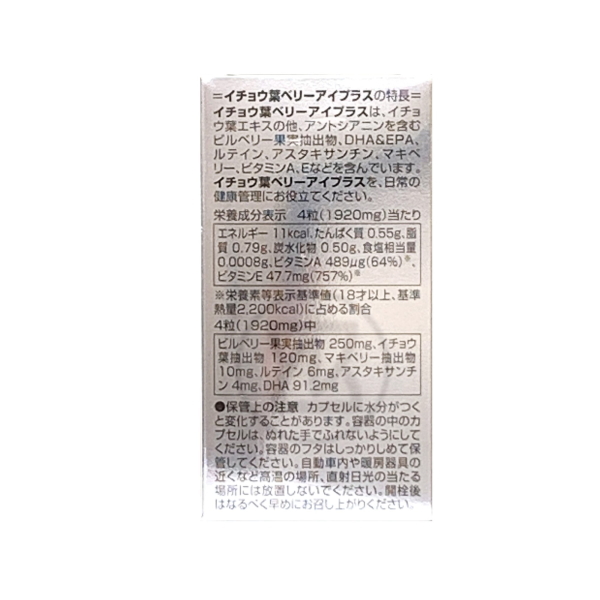 ＝イチョウ葉ベリーアイプラスの特長＝
イチョウ葉ベリーアイプラスは、イチョ
ウ葉エキスの他、アントシアニンを含む
ビルベリー果実抽出物、DHA&EPA、
ルテイン、アスタキサンチン、マキベ
リー、ビタミンA、Eなどを含んでいます。
イチョウ葉ベリーアイプラスを、日常の
健康管理にお役立てください。
栄養成分表示 4粒(1920mg)当たり
エネルギー 11kcal、たんぱく質 0.55g、脂
質 0.79g、炭水化物 0.50g、食塩相当量
0.0008g、ビタミンA 489μg(64%)※、
ビタミンE 47.7mg(757%)※
※栄養素等表示基準値(18才以上、基準
熱量2,200kcal)に占める割合
4粒(1920mg)中
ビルベリー果実抽出物 250mg、イチョウ
葉抽出物 120mg、マキベリー抽出物
10mg、ルテイン 6mg、アスタキサンチ
ン 4mg、DHA 91.2mg
●保管上の注意 カプセルに水分がつく
と変化することがあります。容器の中のカ
プセルは、ぬれた手でふれないようにして
ください。容器のフタはしっかりしめて保
管してください。自動車内や暖房器具の
近くなど高温の場所、直射日光の当たる
場所には放置しないでください。開栓後
はなるべく早めにお召し上がりください。